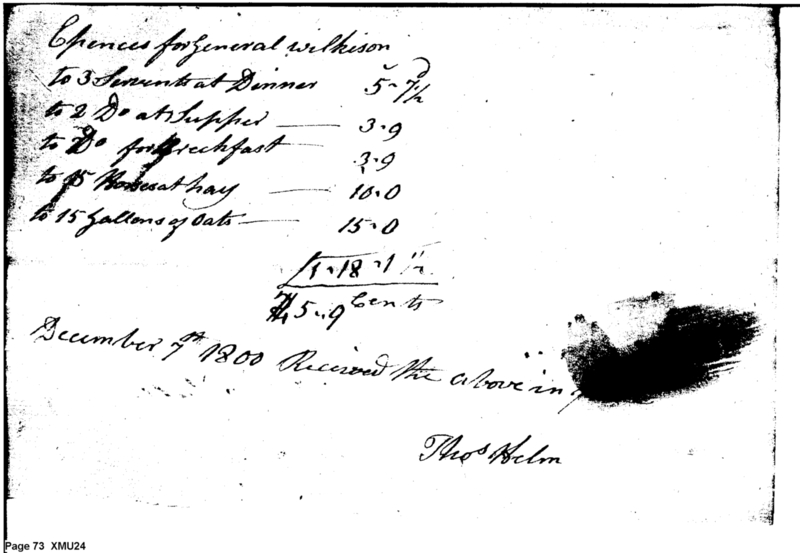 Epences for General wilkison
to 3 Servents at Dinner 5 - 7 1/2
to 2 Do at Supper 3 - 9
to Do for Breckfast 3 - 9
to 15 Horses at hay 10 - 0
to 15 Gallons of Oats 15 - 0
1 - 18 - 1 1/2
5 - 9 Cents
December 7th 1800 Received the above in
Thos Helm
Page 73 XMU24